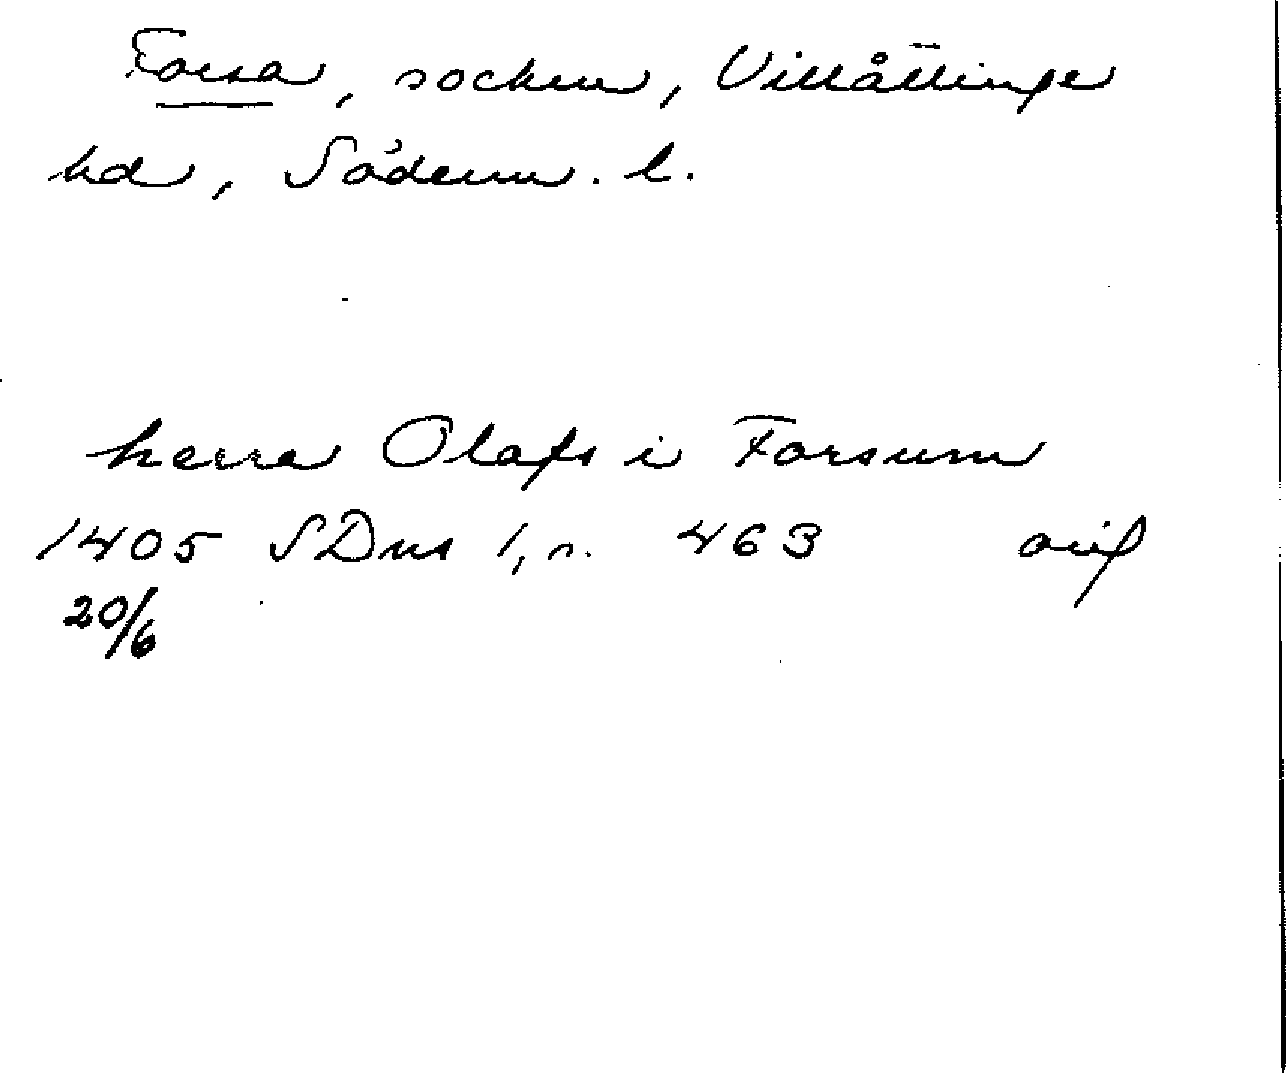 Forsa, socken, Villåttinge
hd, Söderm. l.
herra Olafs i Forsum
1405 SDns 1, s. 463 orig
20/6